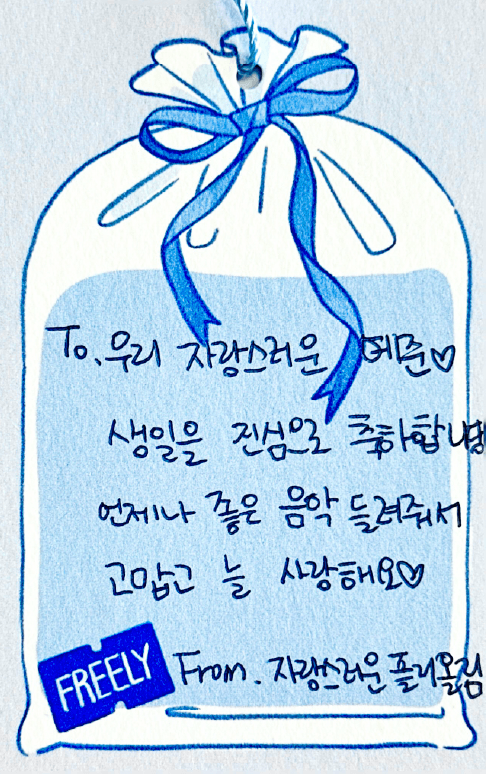 To. 우리 자랑스러운 예준♡
생일을 진심으로 축하합니다
언제나 좋은 음악 들려줘서
고맙고 늘 사랑해요♡
FREELY From. 자랑스러운 플리올림